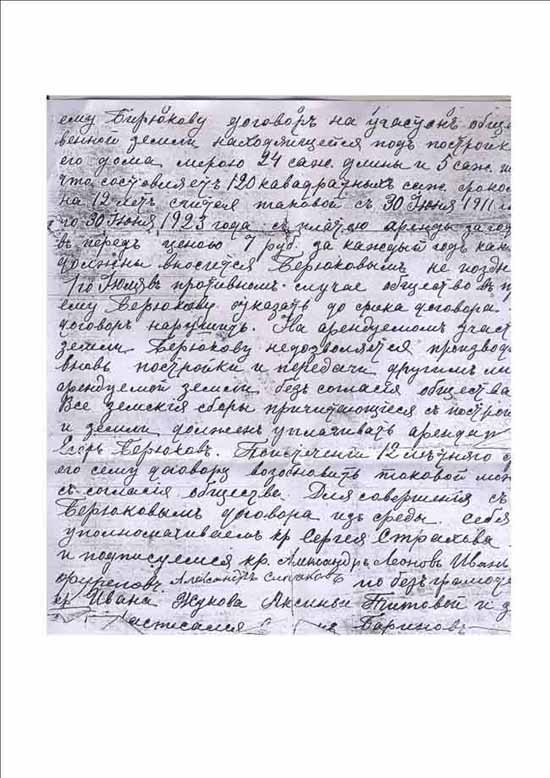 ему Бирюкову договоръ на участокъ общес
венной земли находящейся подъ постройк
его дома мерою 24 саж. длины и 5 саж
что состовляетъ 120 кавадратныхъ саж. сроком
на 12 летъ считая таковой съ 30 Июня 1911 г
по 30 Июня 1923 года съ платою аренды за год
въ передъ ценою 7 руб. за каждый годъ
должны вносится Берюковымъ не поздн
1го Июля въ противномъ случае общество въ
ему Берюкову отказать до срока договора
договоръ нарушить. На арендуемомъ участ
земли Берюкову недозволяется производ
вновь постройки и передачи другимъ
арендуемой земли безъ согласия общества
Все земския сборы причитающиеся съ построй
и земли долженъ уплачивать аренда
Егоръ Берюковъ. Поистечении 12 летняго
его сему договору возобновить таковой мо
съ согласия общества. Для совершения съ
Берюковымъ договора изъ среды себя
уполномачиваемъ кр Сергея Страхова
и подписуемся кр. Александръ Леоновъ Иван
Александръ Страховъ по безграмот
кр Ивана Жукова Аксиньи Титовой и
расписался Бариновъ